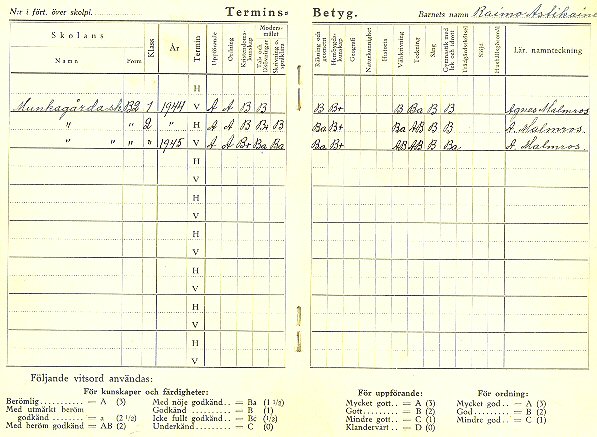 N:r i fört. över skolpl. Termins- Betyg. Barnets name Raimo Astikaine
Skolans
Namn Form Klass År Termin Uppförande Ordning Kristendomskunskap Modersmålet Tal- och läsövningar Skrivning o. språklära Räkning och geometri Hembygdskunskap Geografi Naturkunnighet Historia Välskrivning Teckning Sång Gymnastik med lek och idrott Trädgårdsskötsel Slöjd Hushållsgöromål Lär. namnteckning
H
Munkagårda-sk B2 1 1944 V A A B B B B+ B Ba B B Agnes Malmros
" " 2 " H A A B B+ B Ba B+ Ba AB B B A. Malmros.
" " " " 1945 V A A B+ Ba Ba Ba B+ AB AB B Ba A. Malmros.
H
V
H
V
H
V
H
V
H
V
Följande vitsord användas:
För kunskaper och färdigheter:
Berömlig = A (3)
Med utmärkt beröm godkänd = a (2 1/2)
Med beröm godkänd = AB (2)
Med nöje godkänd = Ba (1 1/2)
Godkänd = B (1)
Icke fullt godkänd = Bc (1/2)
Underkänd = C (0)
För uppförande:
Mycket gott = A (3)
Gott = B (2)
Mindre gott = C (1)
Klandervart = D (0)
För ordning:
Mycket god = A (3)
God = B (2)
Mindre god = C (1)